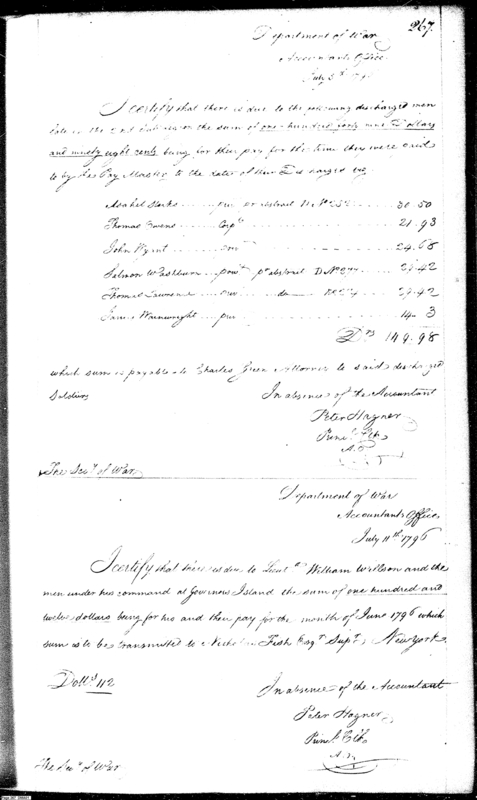 267.
Department of War
Accountants Office
July 5th 179
I certify that there is due to the following discharged men
late in the 2nd on the sum of one hundred forty nine Dollars
and ninety eight cents being for their pay for the time they were
to by the Pay Master to the dates of their Discharges viz
Asahel Starks priv 30.50
Thomas Owens Corpl 21.93
John Wyant priv 24.68
Salmon Washburn priv pr abstract D No 29.42
Thomas Lawrence priv do No 29.42
James Wainwright priv 14. 3
Drs 149.98
which sum is payable to Charles Green Attorney to said discharged
Soldiers
In absence of the Accountant
Peter Hagner
Prinl Clk
A.O
The Secy of War
Department of War
Accountants Office
July 11th 1796
I certify that there is due to Lieut William Wilson and the
men under his command at Governors Island the sum of one hundred and
twelve dollars being for his and their pay for the month of June 1796 which
sum is to be transmitted to Nicholas Fish Esqr Supr New York
Dolls 112
In absence of the Accountant
Peter Hagner
Prinl Clk
A.O
The Secy of War